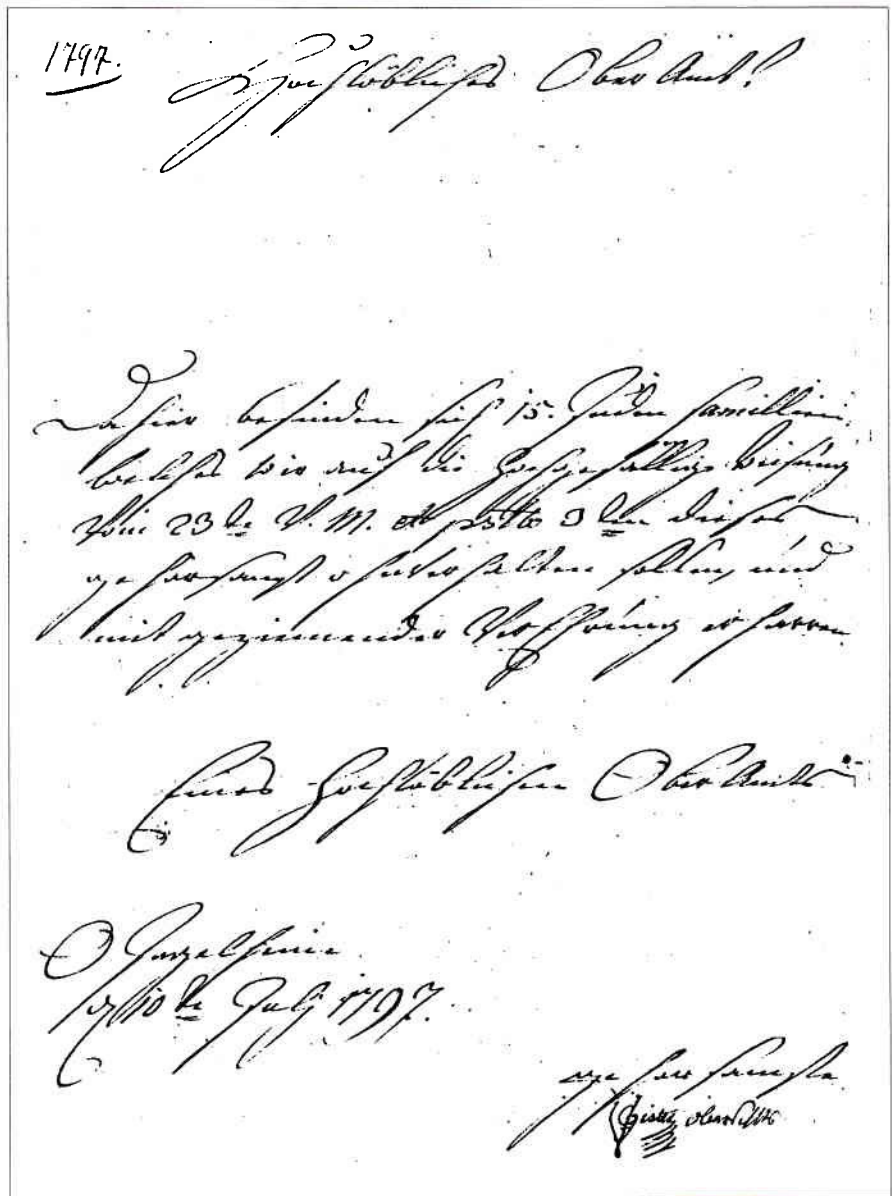 1797.
Hochlöbliches Ober Amt!
Dahier befinden sich 15. Juden Familliein,
welches wir auf die hochgefällige Weisung
vom 23te V. M. et 3ten dieses
gehorsamst ohnverhalten sollen, und
mit geziemender Verehrung erharren
Eines Hochlöblichen Ober Amts
O
d 10te July 1797.
gehorsamste